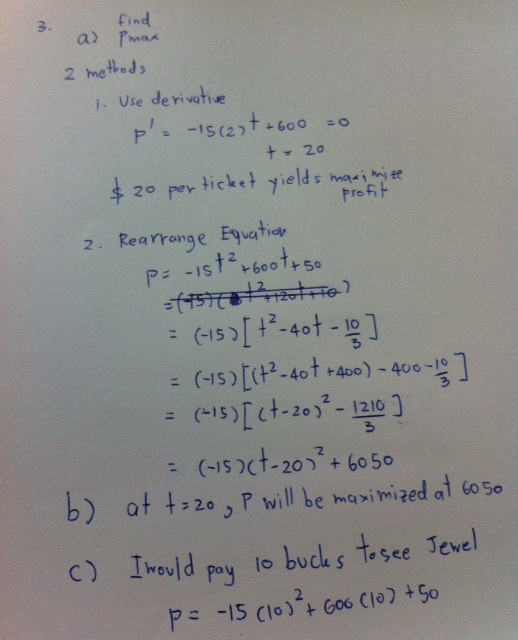 3. find
a) Pmax
2 methods
1. Use derivative
p' = -15(2)t +600 =0
t = 20
$ 20 per ticket yields maximize
profit
2. Rearrange Equation
P= -15t² +600t+50
= (-15)[t²-40t - 10/3]
= (-15)[(t²-40t +400) - 400 - 10/3]
= (-15)[(t-20)² - 1210/3]
= (-15)(t-20)² + 6050
b) at t=20, P will be maximized at 6050
c) I would pay 10 bucks to see Jewel
P= -15(10)² + 600(10) +50